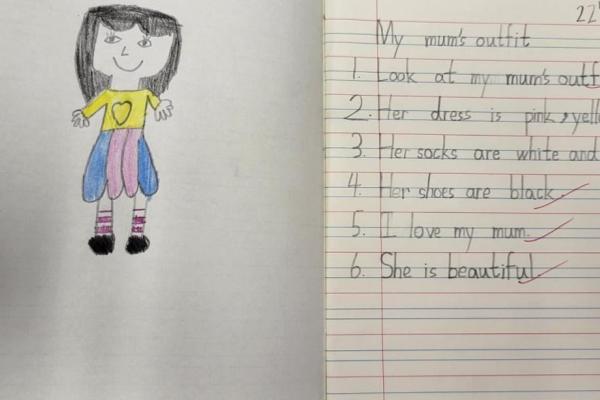 22
My mum's outfit
1. Look at my mum's outf
2. Her dress is pink, yell
3. Her socks are white and
4. Her shoes are black.
5. I love my mum.
6. She is beautiful.